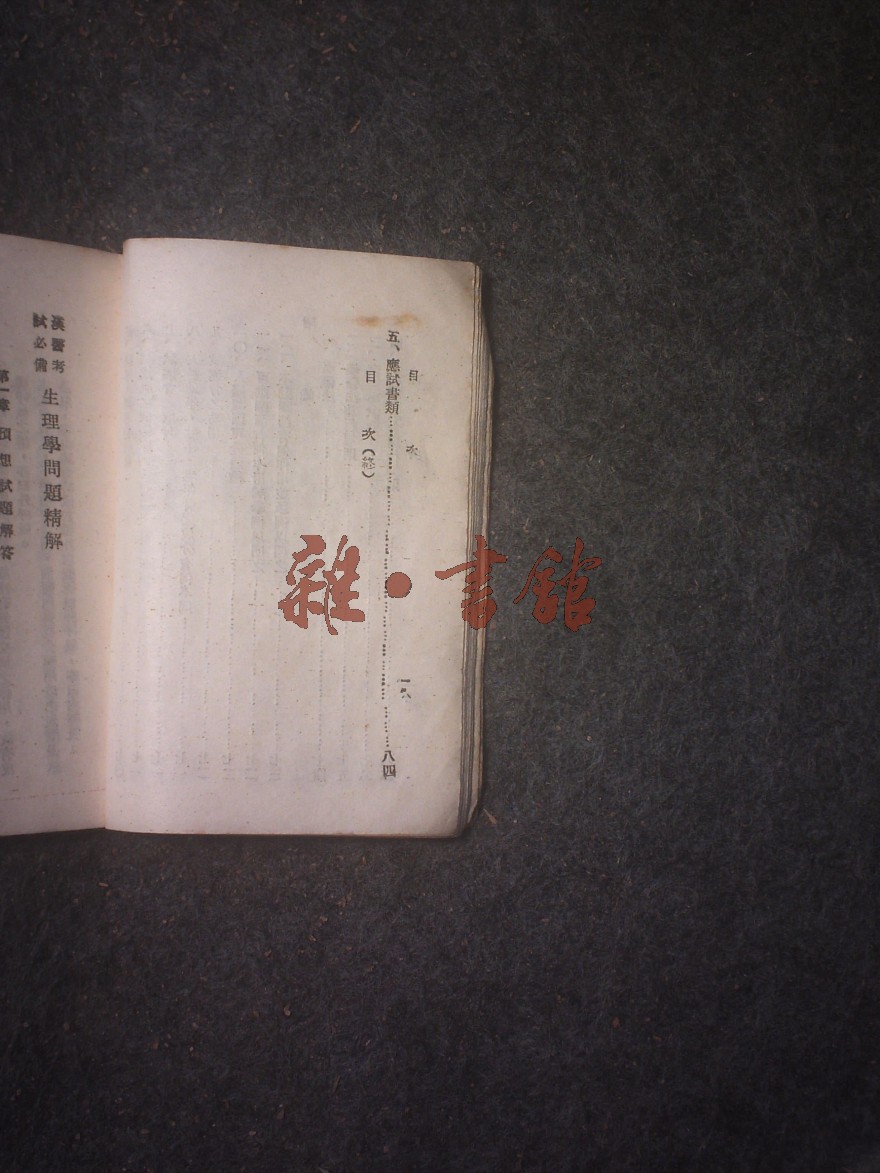 目次
一八
五、應試書類……八四
目次(終)
漢醫考
試必備
生理學問題精解
第一章 預想試題解答
雜·書館